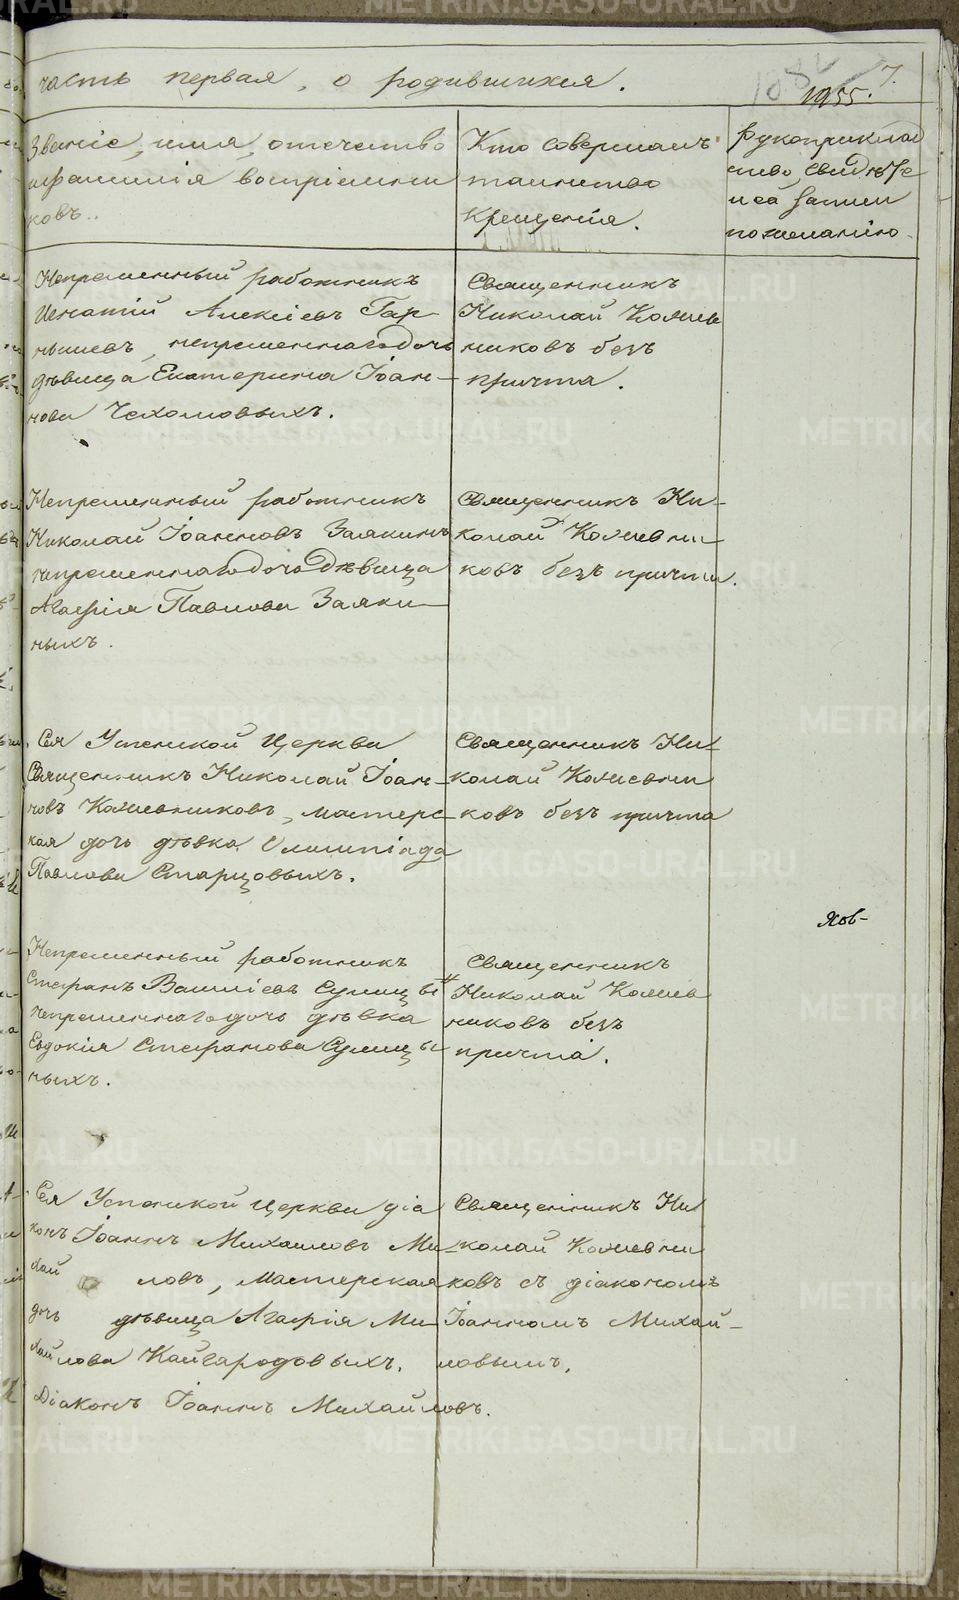 часть первая, о родившихся.
1955. 7.
Званіе, имя, отечество
и фамилія воспріемни
ковъ..
Кто совершалъ
таинство
крещенія.
Рукоприклад
ство свидѣте
лей записи
по желанію.
Непременный работникъ
Игнатій Алексіевъ Гар-
нышевъ, непременнаго дочь
дѣвица Екатерина Іоан-
нова Чехомовыхъ.
Священникъ
Николай Кожев
никовъ безъ
причта.
Непременный работникъ
Николай Іоанновъ Заякинъ
непременнаго дочь дѣвица
Агафія Павлова Заяки-
ныхъ.
Священникъ Ни-
колай Кожевни-
ковъ безъ причта.
Сея Успенской Церкви
Священникъ Николай Іоан-
новъ Кожевниковъ, мастерс-
кая дочь дѣвка Олимпіада
Павлова Старцовыхъ.
Священникъ Ни-
колай Кожевни
ковъ безъ причта
Яков-
Непременный работникъ
Стефанъ Василіевъ Сулицы
непременнаго дочь дѣвка
Евдокія Стефанова Сулицы-
ныхъ.
Священникъ
Николай Кожев
никовъ безъ
причта.
Сея Успенской Церкви діа
конъ Іоаннъ Михаиловъ Ми-
хай ловъ, Мастерская
дочь дѣвица Агафія Ми-
хайлова Кайгародовыхъ.
Священникъ Ни
колай Кожевни
ковъ съ діакономъ
Іоанномъ Михай-
ловымъ.
Діаконъ Іоаннъ Михайловъ.
METRIKI.GASO-URAL.RU